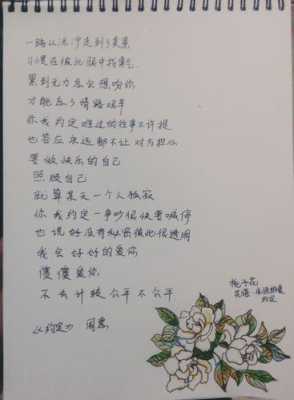 一路从泥泞走到了美景
习惯在彼此眼中找勇气
累到无力总会想吻你
才能忘了情路艰辛
你我约定难过的往事不许提
也答应永远都不让对方担心
要做快乐的自己
照顾自己
就算某天一个人孤寂
你我约定一争吵很快要喊停
也说好没有秘密彼此很透明
我会好好的爱你
傻傻爱你
不去计较公平不公平
《约定》 周蕙
栀子花
花语 永恒的爱
约定